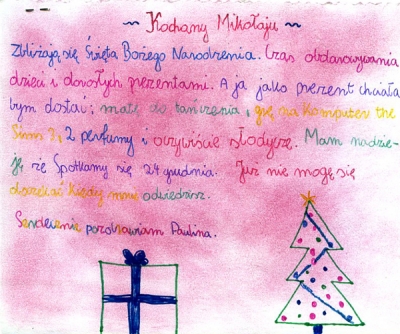 ~ Kochany Mikołaju ~
Zbliżają się Święta Bożego Narodzenia. Czas obdarowywania
dzieci i dorosłych prezentami. A ja jako prezent chciała
bym dostać; matę do tańczenia, grę na komputer the
Sims 2, 2 perfumy i oczywiście słodycze. Mam nadzie-
ję, że spotkamy się 24 grudnia. Już nie mogę się
doczekać kiedy mnie odwiedzisz.
Serdecznie pozdrawiam Paulina.